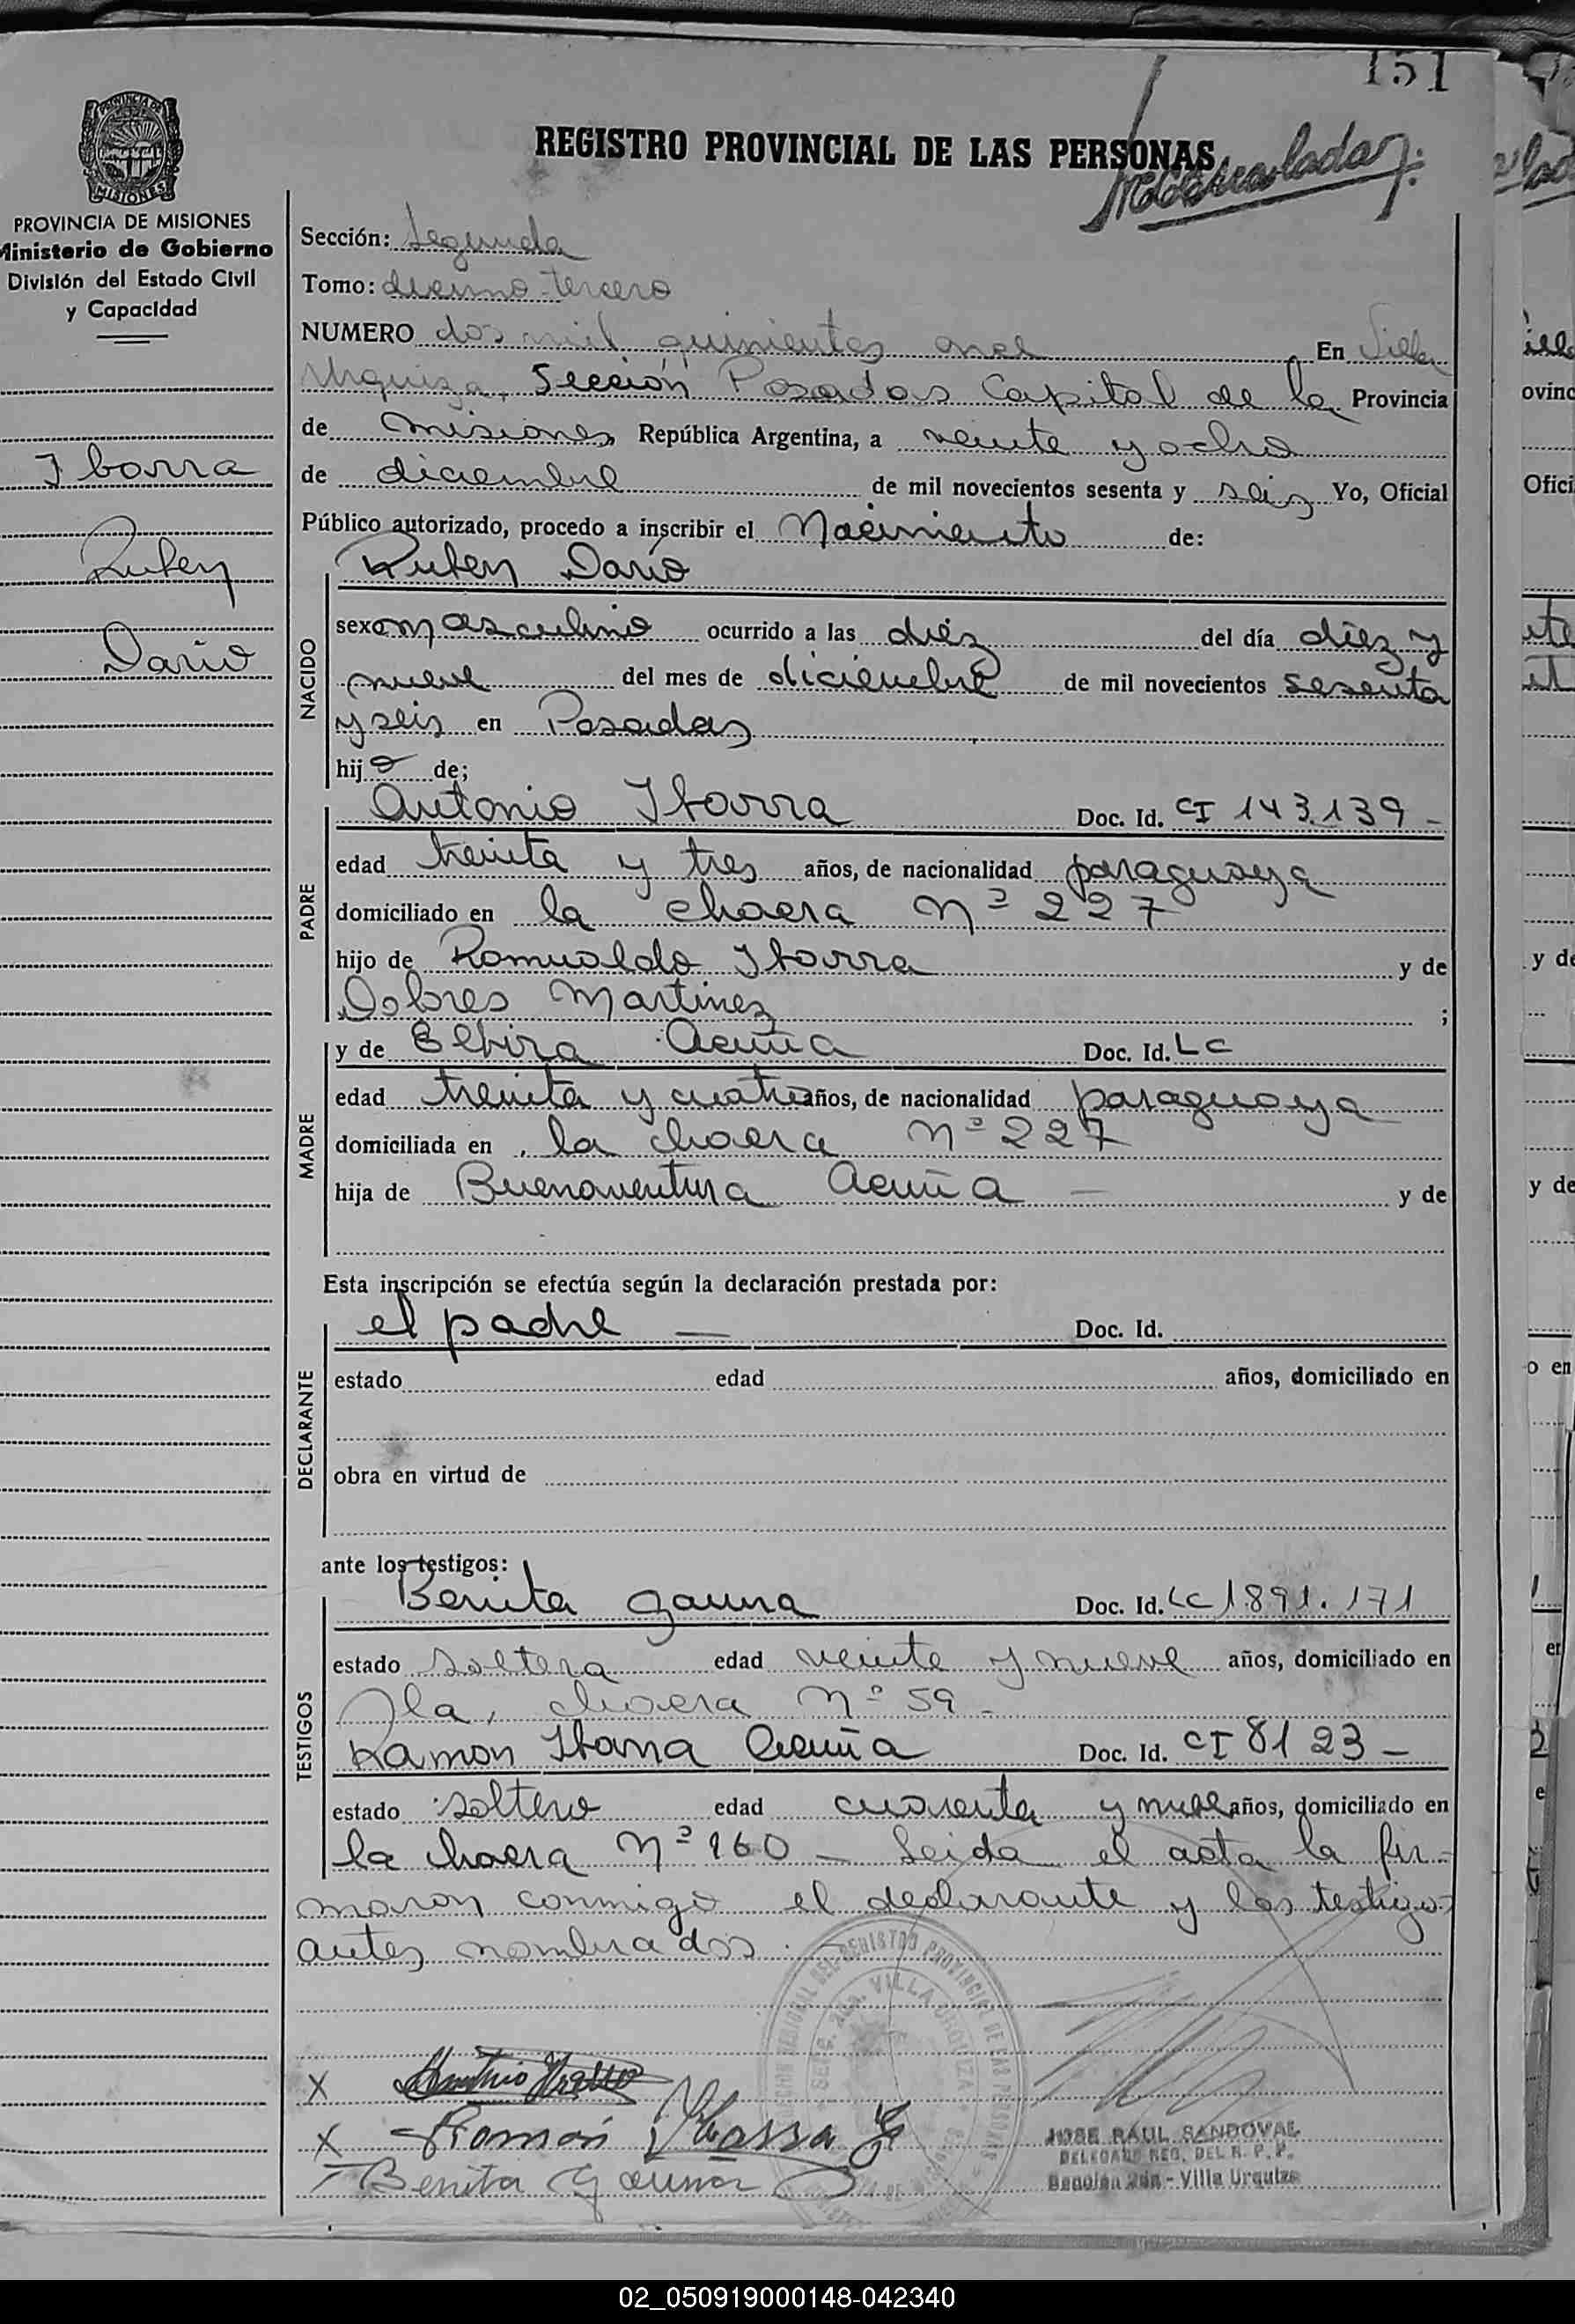 151
REGISTRO PROVINCIAL DE LAS PERSONAS
PROVINCIA DE MISIONES
Ministerio de Gobierno
División del Estado Civil
y Capacidad
Ibarra
Ruben
Dario
Sección: Segunda
Tomo: decimo tercero
NUMERO dos mil quinientos once En Villa
Urquiza, Sección Posadas Capital de la Provincia
de Misiones República Argentina, a veinte y ocho
de diciembre de mil novecientos sesenta y seis Yo, Oficial
Público autorizado, procedo a inscribir el Nacimiento de:
Ruben Dario
NACIDO
sexo masculino ocurrido a las diéz del día diéz y
nueve del mes de diciembre de mil novecientos sesenta
y seis en Posadas
hijo de;
PADRE
Antonio Ibarra Doc. Id. CI 143.139 -
edad treinta y tres años, de nacionalidad paraguaya
domiciliado en la chacra Nº 227
hijo de Romualdo Ibarra y de
Dolores Martinez ;
MADRE
y de Elvira Acuña Doc. Id. LC
edad treinta y cuatro años, de nacionalidad paraguaya
domiciliada en la chacra Nº 227
hija de Buenaventura Acuña — y de
Esta inscripción se efectúa según la declaración prestada por:
DECLARANTE
el padre — Doc. Id.
estado edad años, domiciliado en
obra en virtud de
ante los testigos:
TESTIGOS
Benita Gauna Doc. Id. LC 1891.171
estado soltera edad veinte y nueve años, domiciliado en
la chacra Nº 59 -
Ramon Ibarra Acuña Doc. Id. CI 8123 -
estado soltero edad cuarenta y nueve años, domiciliado en
la chacra Nº 160 — Leida el acta la fir-
maron conmigo el declarante y los testigos
antes nombrados.
VILLA URQUIZA
X Antonio Ibarra
X Ramón Ibarra
Benita Gauna
JOSE RAUL SANDOVAL
DELEGADO REG. DEL R. P. P.
Sección 2da - Villa Urquiza
02_050919000148-042340